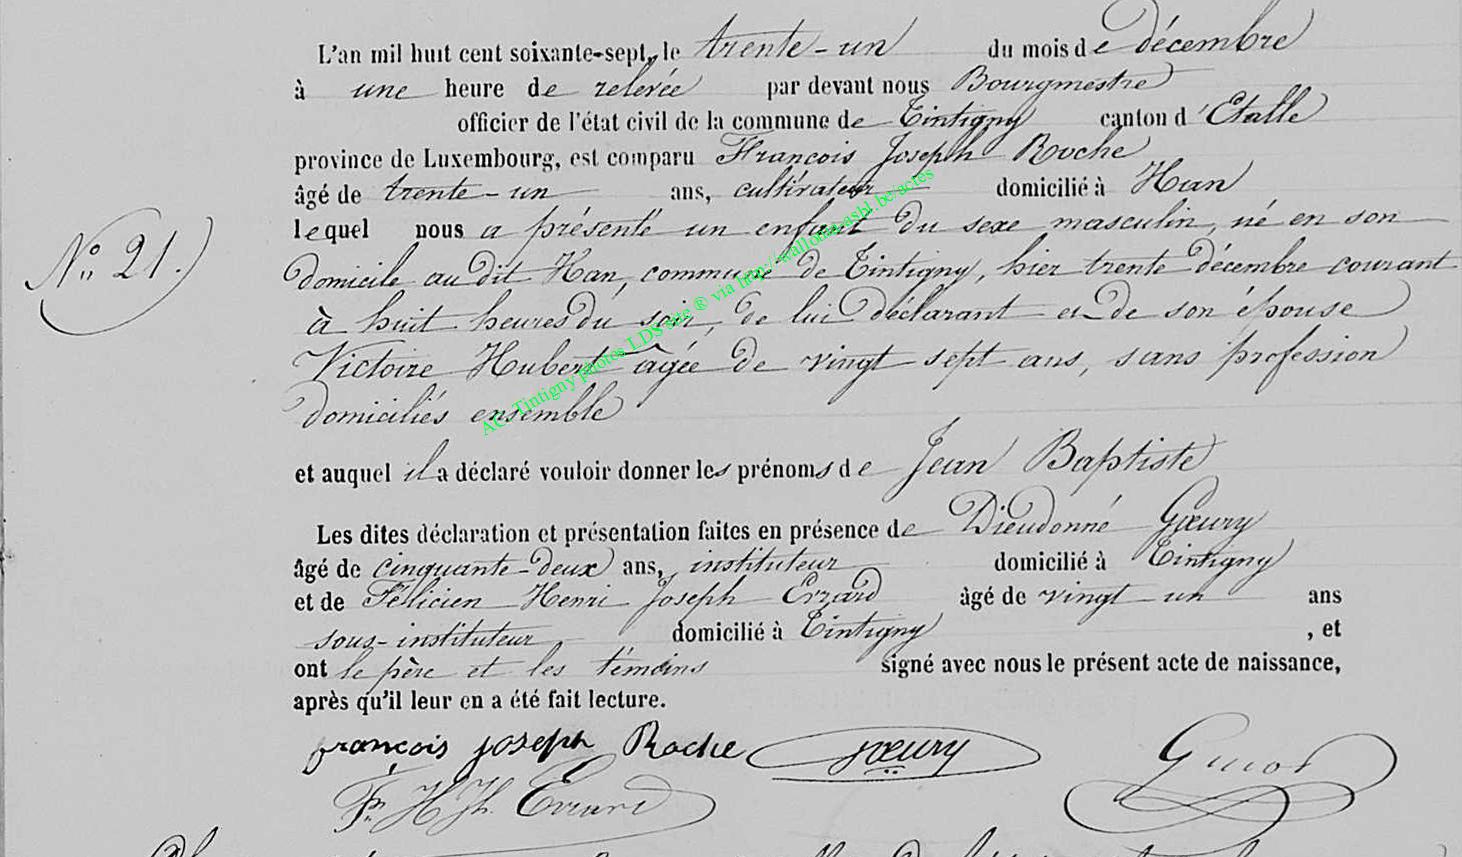 L'an mil huit cent soixante-sept, le trente-un du mois de décembre
à une heure de relevée par devant nous Bourgmestre
officier de l'état civil de la commune de Tintigny canton d'Etalle
province de Luxembourg, est comparu François Joseph Roche
âgé de trente-un ans, cultivateur domicilié à Han
lequel nous a présenté un enfant du sexe masculin, né en son
N° 21.
domicile au dit Han, commune de Tintigny, hier trente décembre courant
à huit heures du soir, de lui déclarant et de son épouse
Victoire Hubert âgée de vingt sept ans, sans profession
domiciliés ensemble
AC Tintigny photos LDS site ® via http://wallonia.asbl.be/actes
et auquel il a déclaré vouloir donner les prénoms de Jean Baptiste
Les dites déclaration et présentation faites en présence de Dieudonné Gœury
âgé de cinquante-deux ans, instituteur domicilié à Tintigny
et de Félicien Henri Joseph Evrard âgé de vingt un ans
sous-instituteur domicilié à Tintigny , et
ont le père et les témoins signé avec nous le présent acte de naissance,
après qu'il leur en a été fait lecture.
françois joseph Roche gœury
F. H. Jh. Evrard